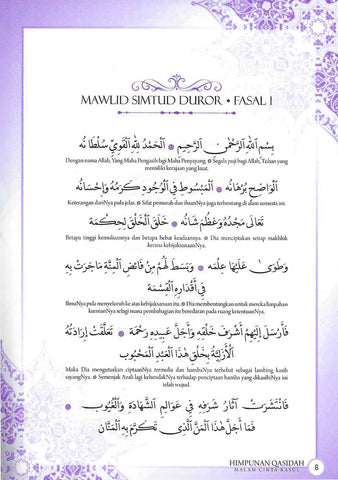 MAWLID SIMTUD DUROR • FASAL 1
بِسْمِ اللَّهِ الرَّحْمٰنِ الرَّحِيْمِ ۞ الْحَمْدُ لِلَّهِ الْقَوِيِّ سُلْطَانُهُ
Dengan nama Allah, Yang Maha Pengasih lagi Maha Penyayang. ۞ Segala puji bagi Allah, Tuhan yang
memiliki kerajaan yang kuat.
الْوَاضِحِ بُرْهَانُهُ ۞ الْمَبْسُوْطِ فِي الْوُجُوْدِ كَرَمُهُ وَإِحْسَانُهُ
Keterangan dariNya pula jelas. ۞ Sifat pemurah dan ihsanNya juga terbentang di alam semesta ini.
تَعَالَى مَجْدُهُ وَعَظُمَ شَانُهُ ۞ خَلَقَ الْخَلْقَ لِحِكْمَة
Betapa tinggi kemuliaannya dan betapa hebat keadaannya. ۞ Dia menciptakan setiap makhluk
kerana kebijaksanaanNya.
وَطَوَى عَلَيْهَا عِلْمَه ۞ وَبَسَطَ لَهُمْ مِنْ فَائِضِ الْمِنَّةِ مَاجَرَتْ بِهِ
فِي أَقْدَارِهِ الْقِسْمَة
IlmuNya pula menyeluruh ke atas kebijaksanaan itu. ۞ Dia membentangkan untuk mereka limpahan
kurniaNya selagi mana pembahagian itu beredaran pada ruang ketentuanNya.
فَأَرْسَلَ إِلَيْهِمْ أَشْرَفَ خَلْقِهِ وَأَجَلَّ عَبِيْدِهِ رَحْمَة ۞ تَعَلَّقَتْ إِرَادَتُهُ
الْأَزَلِيَّةُ بِخَلْقِ هٰذَا الْعَبْدِ الْمَحْبُوْبِ
Maka Dia mengutuskan ciptaanNya termulia dan hambaNya terhebat sebagai lambang kasih
sayangNya. ۞ Semenjak Azali lagi kehendakNya terhadap penciptaan hamba yang dikasihiNya ini
telah wujud.
فَانْتَشَرَتْ آثَارُ شَرَفِهِ فِي عَوَالِمِ الشَّهَادَةِ وَالْغُيُوْبِ
۞ فَمَا أَجَلَّ هٰذَا الْمَنَّ الَّذِي تَكَرَّمَ بِهِ الْمَنَّانُ
HIMPUNAN QASIDAH
MALAM CINTA RASUL
8